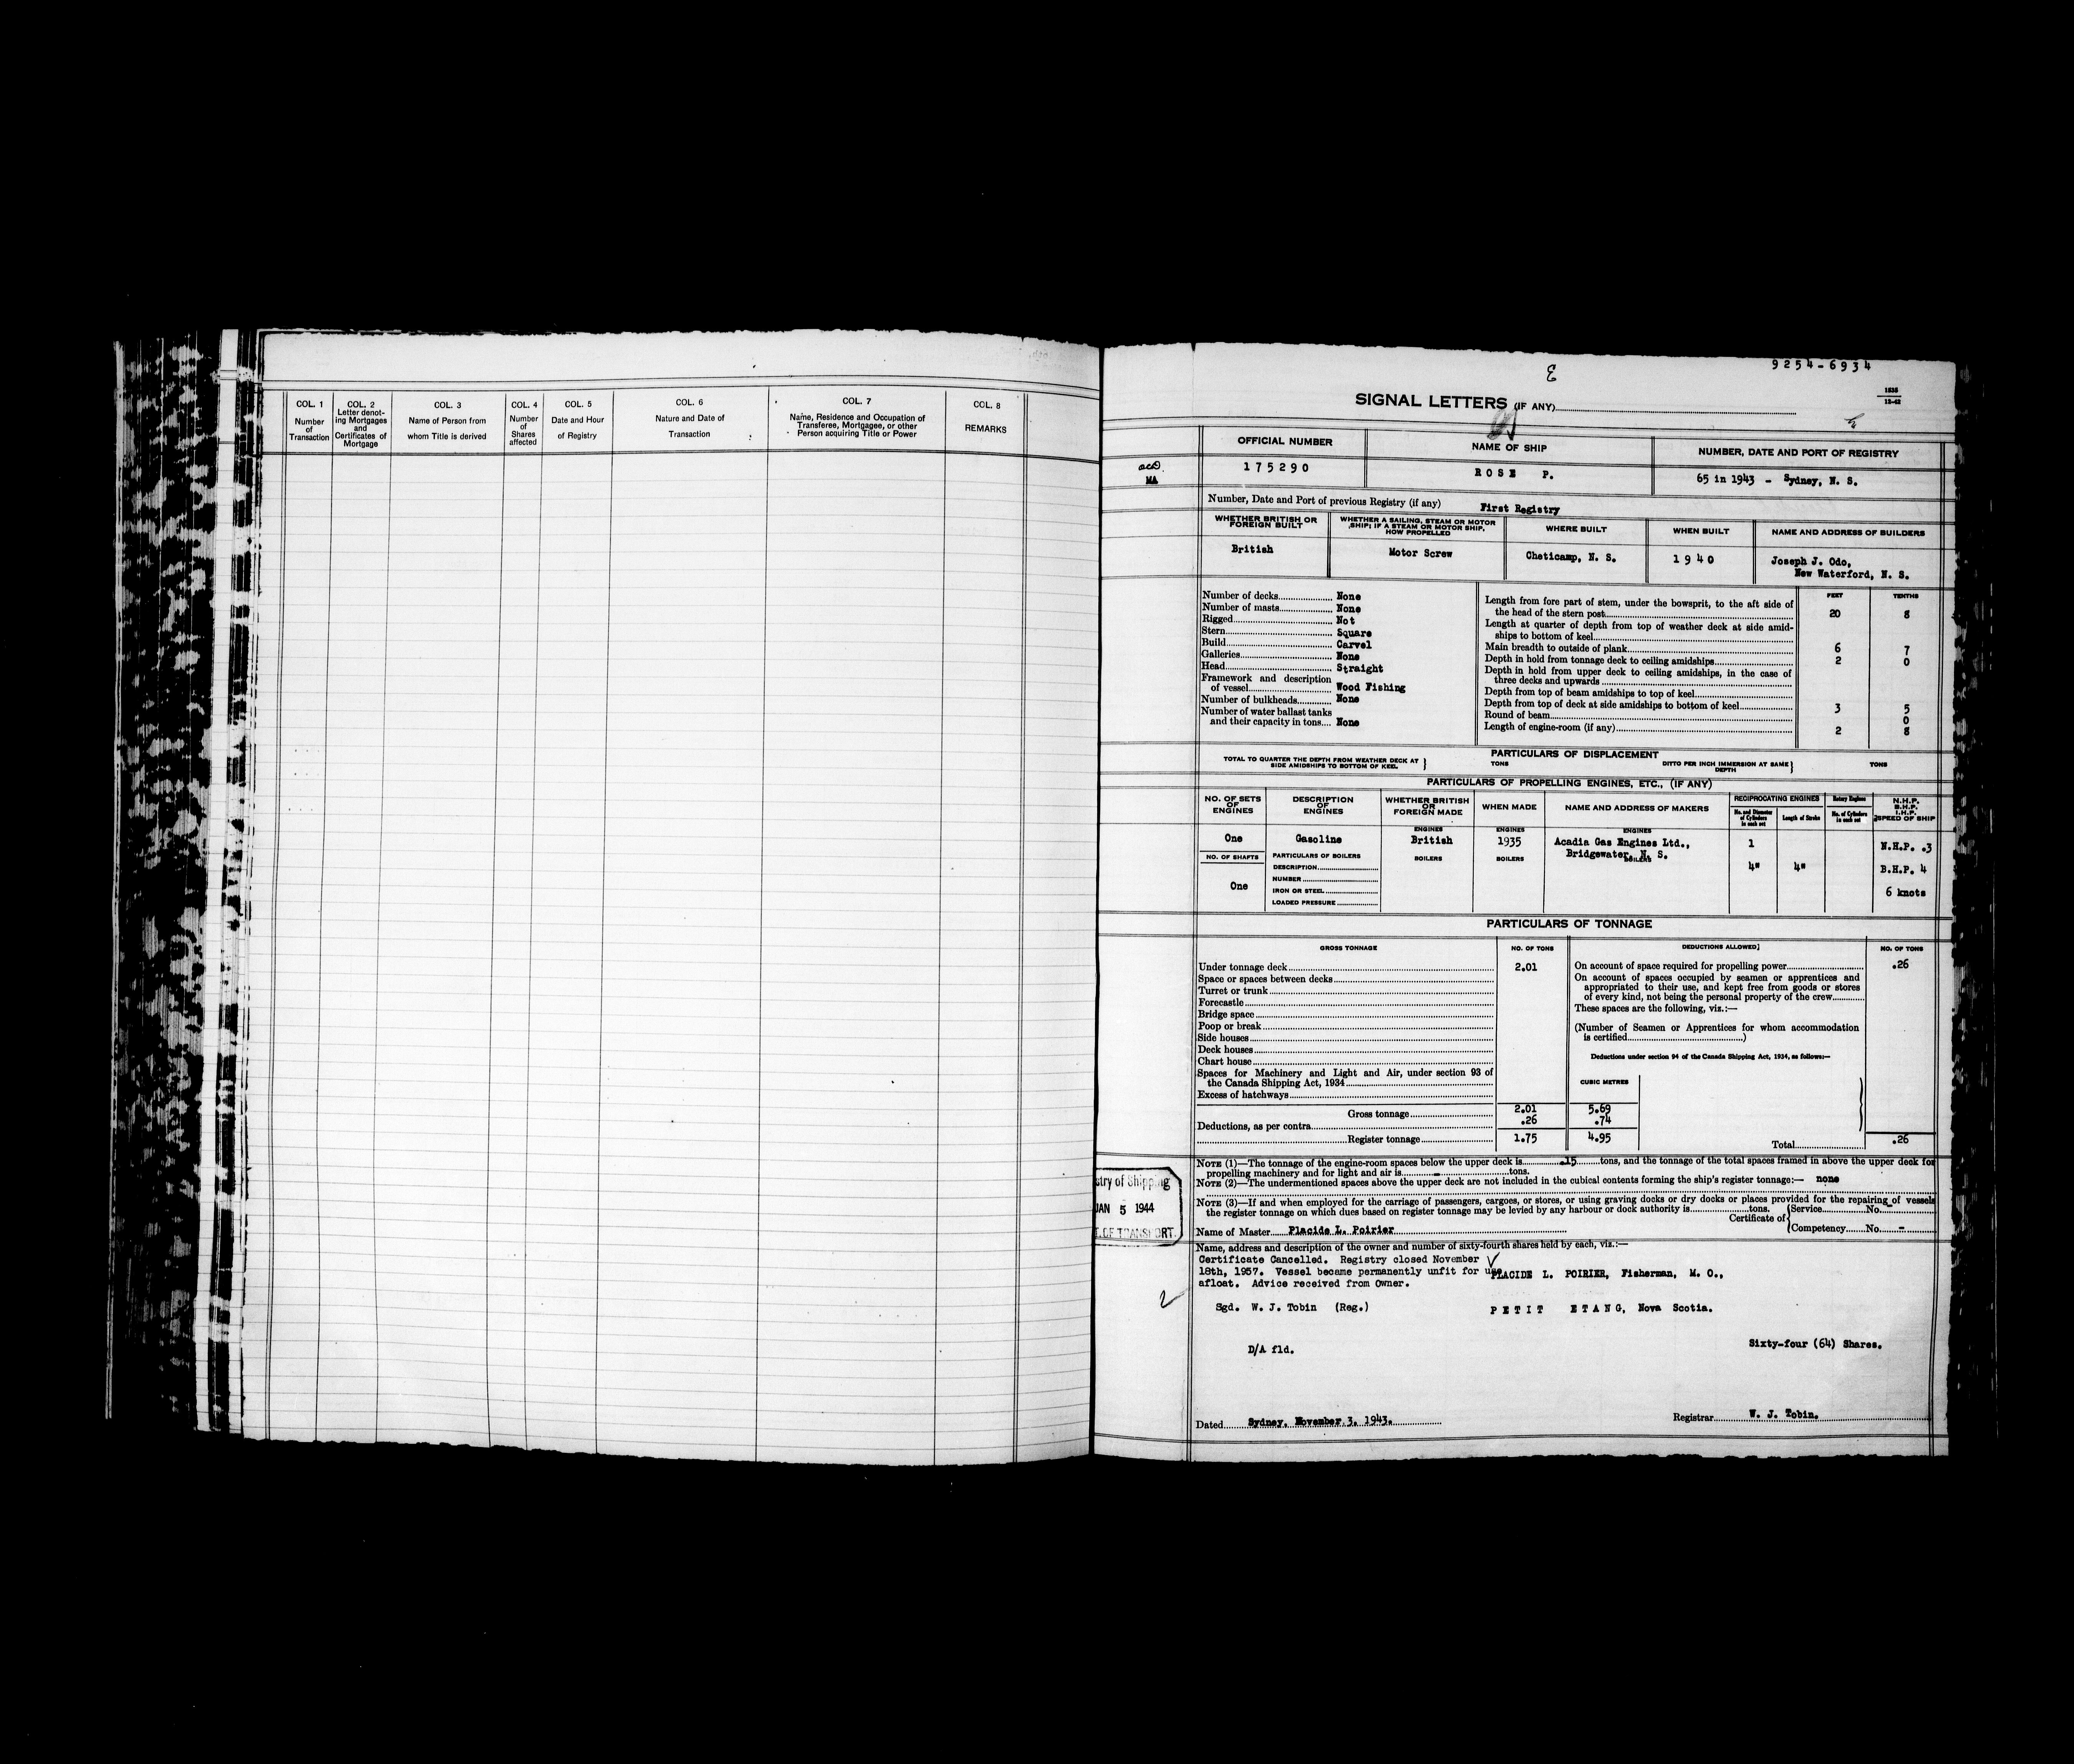 COL. 1
Number
of
Transaction
COL. 2
Letter denot-
ing Mortgages
and
Certificates of
Mortgage
COL. 3
Name of Person from
whom Title is derived
COL. 4
Number
of
Shares
affected
COL. 5
Date and Hour
of Registry
COL. 6
Nature and Date of
Transaction
COL. 7
Name, Residence and Occupation of
Transferee, Mortgagee, or other
Person acquiring Title or Power
COL. 8
REMARKS
9254-6934
SIGNAL LETTERS (IF ANY)
OFFICIAL NUMBER
NAME OF SHIP
NUMBER, DATE AND PORT OF REGISTRY
MA
175290
ROSE P.
65 in 1943 - Sydney, N. S.
Number, Date and Port of previous Registry (if any) First Registry
WHETHER BRITISH OR
FOREIGN BUILT
WHETHER A SAILING, STEAM OR MOTOR
SHIP; IF A STEAM OR MOTOR SHIP,
HOW PROPELLED
WHERE BUILT
WHEN BUILT
NAME AND ADDRESS OF BUILDERS
British
Motor Screw
Cheticamp, N. S.
1940
Joseph J. Odo,
New Waterford, N. S.
Number of decks None
Number of masts None
Rigged Not
Stern Square
Build Carvel
Galleries None
Head Straight
Framework and description
of vessel Wood Fishing
Number of bulkheads None
Number of water ballast tanks
and their capacity in tons None
FEET TENTHS
Length from fore part of stem, under the bowsprit, to the aft side of
the head of the stern post 20 8
Length at quarter of depth from top of weather deck at side amid-
ships to bottom of keel
Main breadth to outside of plank 6 7
Depth in hold from tonnage deck to ceiling amidships 2 0
Depth in hold from upper deck to ceiling amidships, in the case of
three decks and upwards
Depth from top of beam amidships to top of keel
Depth from top of deck at side amidships to bottom of keel 3 5
Round of beam 0
Length of engine-room (if any) 2 8
PARTICULARS OF DISPLACEMENT
TOTAL TO QUARTER THE DEPTH FROM WEATHER DECK AT
SIDE AMIDSHIPS TO BOTTOM OF KEEL
TONS
DITTO PER INCH IMMERSION AT SAME
DEPTH
TONS
PARTICULARS OF PROPELLING ENGINES, ETC., (IF ANY)
NO. OF SETS
OF
ENGINES
DESCRIPTION
OF
ENGINES
WHETHER BRITISH
OR
FOREIGN MADE
WHEN MADE
NAME AND ADDRESS OF MAKERS
RECIPROCATING ENGINES
No. and Diameter
of Cylinders
in each set
Length of Stroke
Rotary Engines
No. of Cylinders
in each set
N.H.P.
B.H.P.
I.H.P.
SPEED OF SHIP
ENGINES ENGINES ENGINES
One Gasoline British 1935 Acadia Gas Engines Ltd., 1 N.H.P. .3
Bridgewater, N. S.
NO. OF SHAFTS
PARTICULARS OF BOILERS BOILERS BOILERS BOILERS
DESCRIPTION 4" 4" B.H.P. 4
NUMBER
One
IRON OR STEEL 6 knots
LOADED PRESSURE
PARTICULARS OF TONNAGE
GROSS TONNAGE NO. OF TONS DEDUCTIONS ALLOWED NO. OF TONS
Under tonnage deck 2.01
Space or spaces between decks
Turret or trunk
Forecastle
Bridge space
Poop or break
Side houses
Deck houses
Chart house
Spaces for Machinery and Light and Air, under section 93 of
the Canada Shipping Act, 1934
Excess of hatchways
Gross tonnage 2.01 5.69
Deductions, as per contra .26 .74
Register tonnage 1.75 4.95
On account of space required for propelling power .26
On account of spaces occupied by seamen or apprentices and
appropriated to their use, and kept free from goods or stores
of every kind, not being the personal property of the crew
These spaces are the following, viz.:—
(Number of Seamen or Apprentices for whom accommodation
is certified)
Deductions under section 94 of the Canada Shipping Act, 1934, as follows:—
CUBIC METRES
Total .26
NOTE (1)—The tonnage of the engine-room spaces below the upper deck is .15 tons, and the tonnage of the total spaces framed in above the upper deck for
propelling machinery and for light and air is - tons.
NOTE (2)—The undermentioned spaces above the upper deck are not included in the cubical contents forming the ship's register tonnage:— none
NOTE (3)—If and when employed for the carriage of passengers, cargoes, or stores, or using graving docks or dry docks or places provided for the repairing of vessels
the register tonnage on which dues based on register tonnage may be levied by any harbour or dock authority is tons.
Certificate of
Service No. -
Competency No. -
Name of Master Placide L. Poirier
stry of Shipping
JAN 5 1944
T. OF TRANSPORT.
Name, address and description of the owner and number of sixty-fourth shares held by each, viz.:—
Certificate Cancelled. Registry closed November
18th, 1957. Vessel became permanently unfit for use
afloat. Advice received from Owner.
Sgd. W. J. Tobin (Reg.)
D/A fld.
PLACIDE L. POIRIER, Fisherman, M. O.,
PETIT ETANG, Nova Scotia.
Sixty-four (64) Shares.
Dated Sydney, November 3, 1943.
Registrar W. J. Tobin.